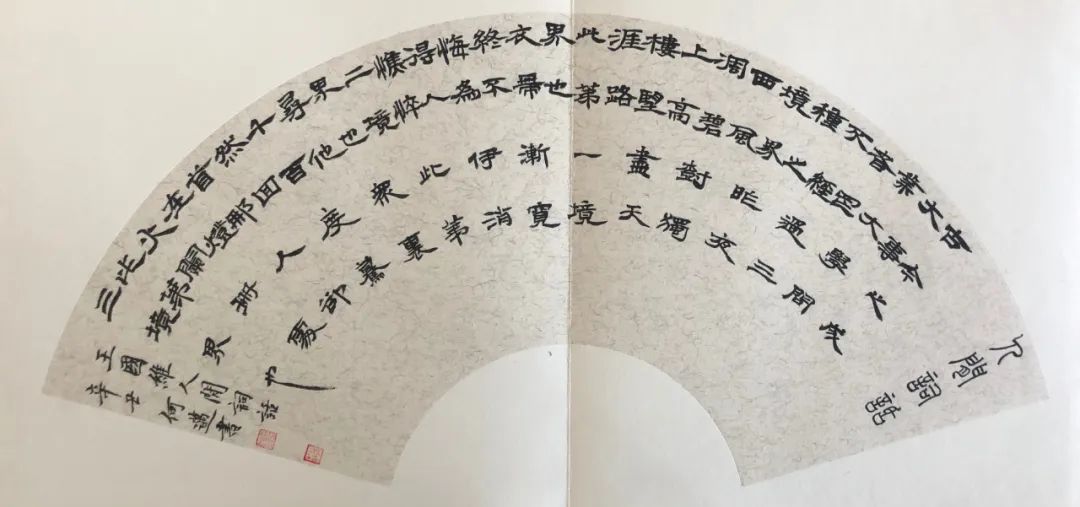 人間詞話
古今之成
大事
業大學問
者罔
不經過三
種之
境界昨夜
西風
凋碧樹獨
上高
樓望盡天
涯路
此第一境
界也
衣帶漸寬
終不
悔為伊消
得人
憔悴此第
二境
界也衆裏
尋他
千百度驀
然回
首那人卻
在燈
火闌珊處
此第
三境界也
王國維人間詞話
辛丑何邁書